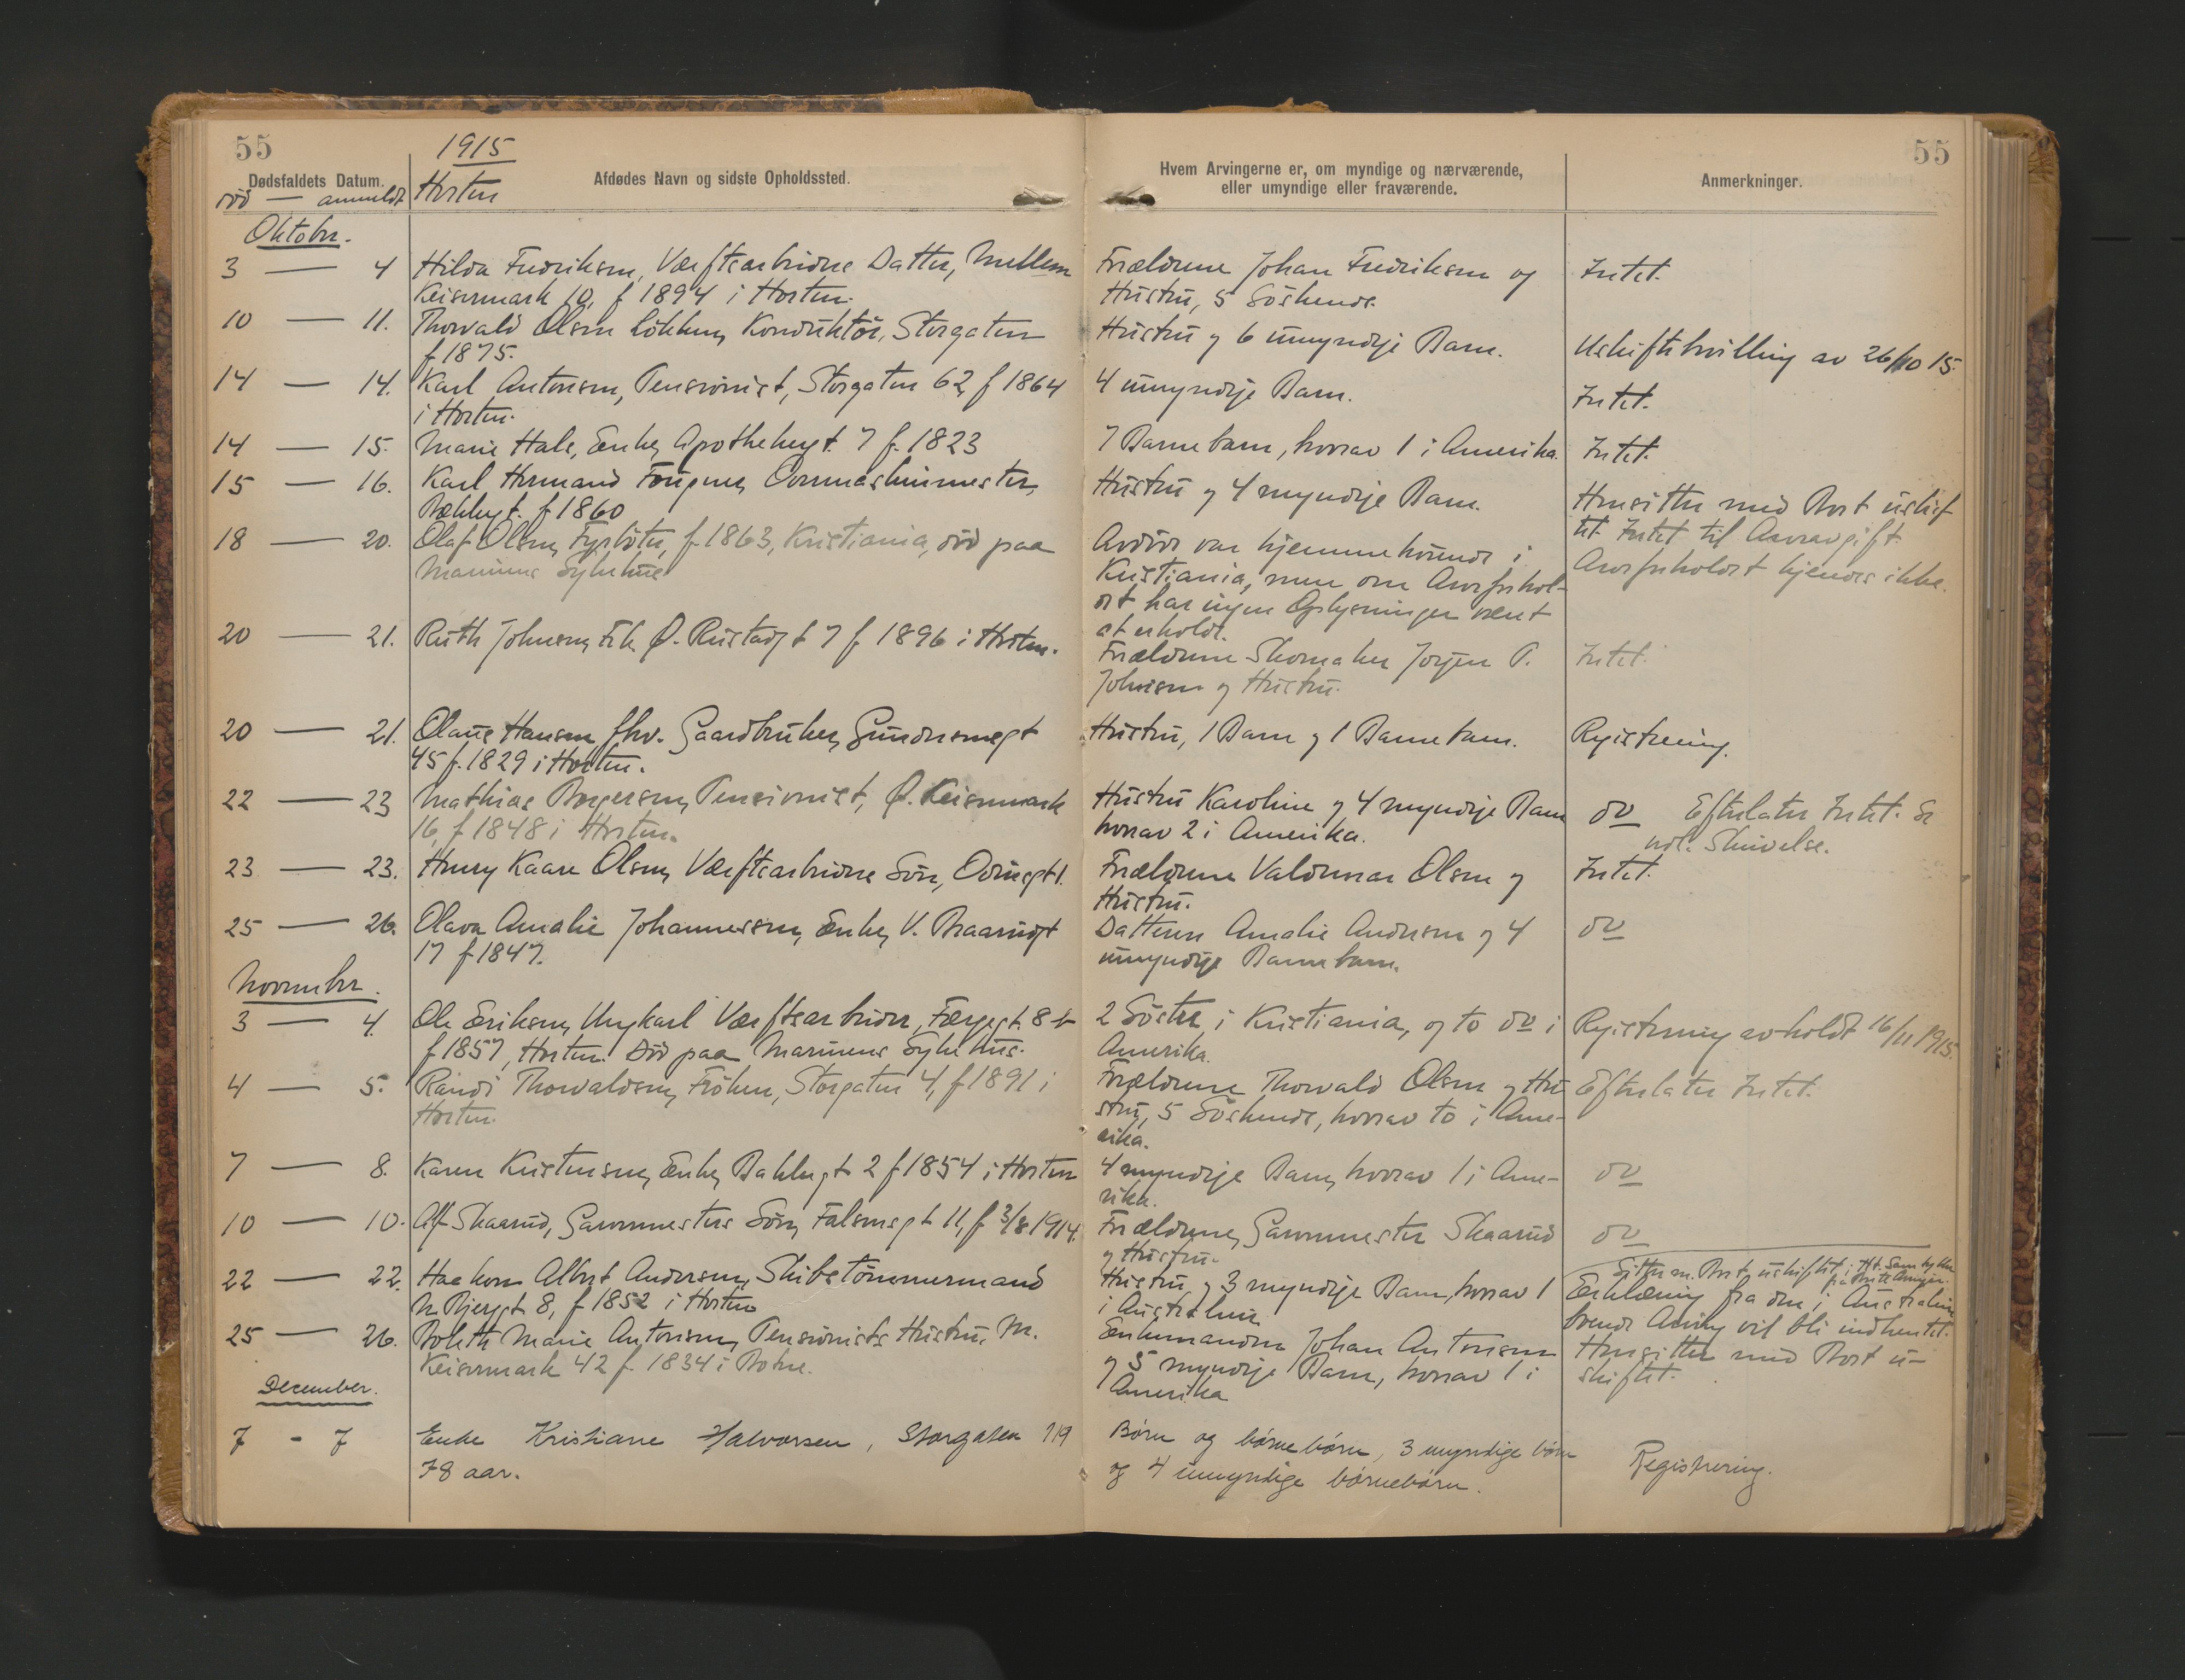 55
1915
Dødsfaldets Datum.
død — anmeldt
Horten
Afdødes Navn og sidste Opholdssted.
Hvem Arvingerne er, om myndige og nærværende,
eller umyndige eller fraværende.
Anmerkninger.
55
Oktober.
3 — 4 Hilda Fredriksen, Værftsarbeiders Datter, Mellem
Keisermark 10, f 1894 i Horten.
Forældrene Johan Fredriksen og
Hustru, 5 Söskende.
Intet.
10 — 11. Thorvald Olsen Lökken, Konduktör, Storgaten
f 1875.
Hustru og 6 umyndige Barn.
Uskiftebevilling av 26/10 15.
14 — 14. Karl Antonsen, Pensionist, Storgaten 62, f 1864
i Horten.
4 umyndige Barn.
Intet.
14 — 15. Marie Hals, Enke, Apothekergt. 7 f. 1823
7 Barnebarn, hvorav 1 i Amerika.
Intet.
15 — 16. Karl Hermand Fougner, Overmaskinmester,
Bakkegt. f 1860
Hustru og 4 myndige Barn.
Hensitter med Boet uskif
tet. Intet til Arveavgift.
18 — 20. Olaf Olsen, Fyrböter, f. 1863, Kristiania, död paa
Marinens Sykehus
Avdöde var hjemmehörende i
Kristiania, men om Arveforhol-
det har ingen Oplysninger været
at erholde.
Arveforholdet kjendes ikke.
20 — 21. Ruth Johnsen, Frk. Ø. Rustadgt 7 f 1896 i Horten.
Forældrene Skomaker Jørgen P.
Johnsen og Hustru.
Intet.
20 — 21. Olaus Hansen fhv. Gaardbruker, Gunnersmegt
45 f. 1829 i Horten.
Hustru, 1 Barn og 1 Barnebarn.
Registrering.
22 — 23 Mathias Borgersen, Pensionist, Ø. Keisermark
16, f 1848 i Horten.
Hustru Karoline og 4 myndige Barn
hvorav 2 i Amerika.
do Efterlater Intet. Se
vedl. Skrivelse.
23 — 23. Henry Kaare Olsen, Værftsarbeiders Sön, Odinsgt 1.
Forældrene Valdemar Olsen og
Hustru.
Intet.
25 — 26. Olava Amalie Johannessen, Enke, V. Braarudgt
17 f 1847.
Datteren Amalie Andersen og 4
umyndige Barnebarn.
do
November.
3 — 4. Ole Eriksen, Ungkarl Værftsarbeider, Færgegt. 8 b
f 1857, Horten. Död paa Marinens Sykehus.
2 Söster i Kristiania, og to do i
Amerika.
Registrering avholdt 16/11 1915.
4 — 5. Randi Thorvaldsen, Fröken, Storgaten 4, f 1891 i
Horten.
Forældrene Thorvald Olsen og Hu
stru, 5 Söskende, hvorav to i Ame-
rika.
Efterlater Intet.
7 — 8. Karen Kristensen, Enke, Bakkegt 2 f 1854 i Horten
4 myndige Barn, hvorav 1 i Ame-
rika.
do
10 — 10. Alf Skaarud, Garvermesters Sön, Falsensgt 11, f 3/8 1914.
Forældrene, Garvermester Skaarud
og Hustru.
do
22 — 22. Haakon Albert Andersen, Skibstömmermand
N. Bjergt 8, f 1852 i Horten
Hustru og 3 myndige Barn, hvorav 1
i Australien
Sitter m. Boet uskiftet i Hht. Samtykke
fra Arvinger.
Erklæring fra den i Australien
boende Arving vil bli indhentet.
25 — 26. Boleth Marie Antonsen, Pensionists Hustru, M.
Keisermark 42 f. 1834 i Botne.
Enkemanden Johan Antonsen
og 5 myndige Barn, hvorav 1 i
Amerika
Hensitter med Boet u-
skiftet.
December.
7 - 7 Enke Kristiane Halvorsen, Storgaten 119
78 aar.
Børn og børnebørn, 3 myndige børn
og 4 umyndige børnebørn.
Registrering.